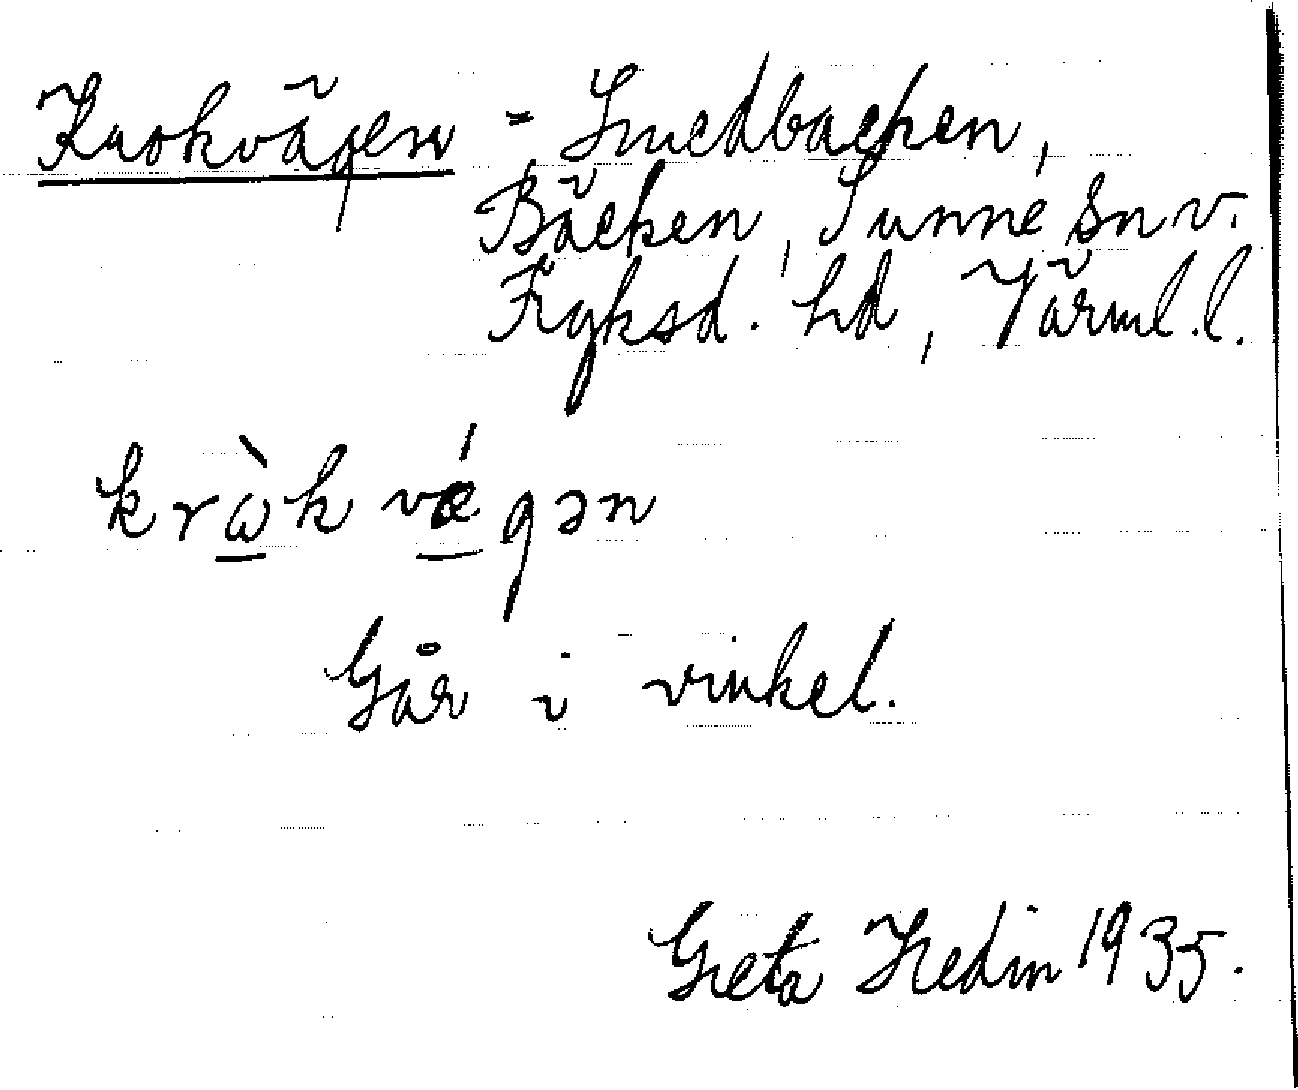 Krokvägen = Smedbacken,
Bäcken, Sunne sn v.
Fryksd. hd, Värml. l.
krὼk vǽgən
Går i vinkel.
Greta Hedin 1935.